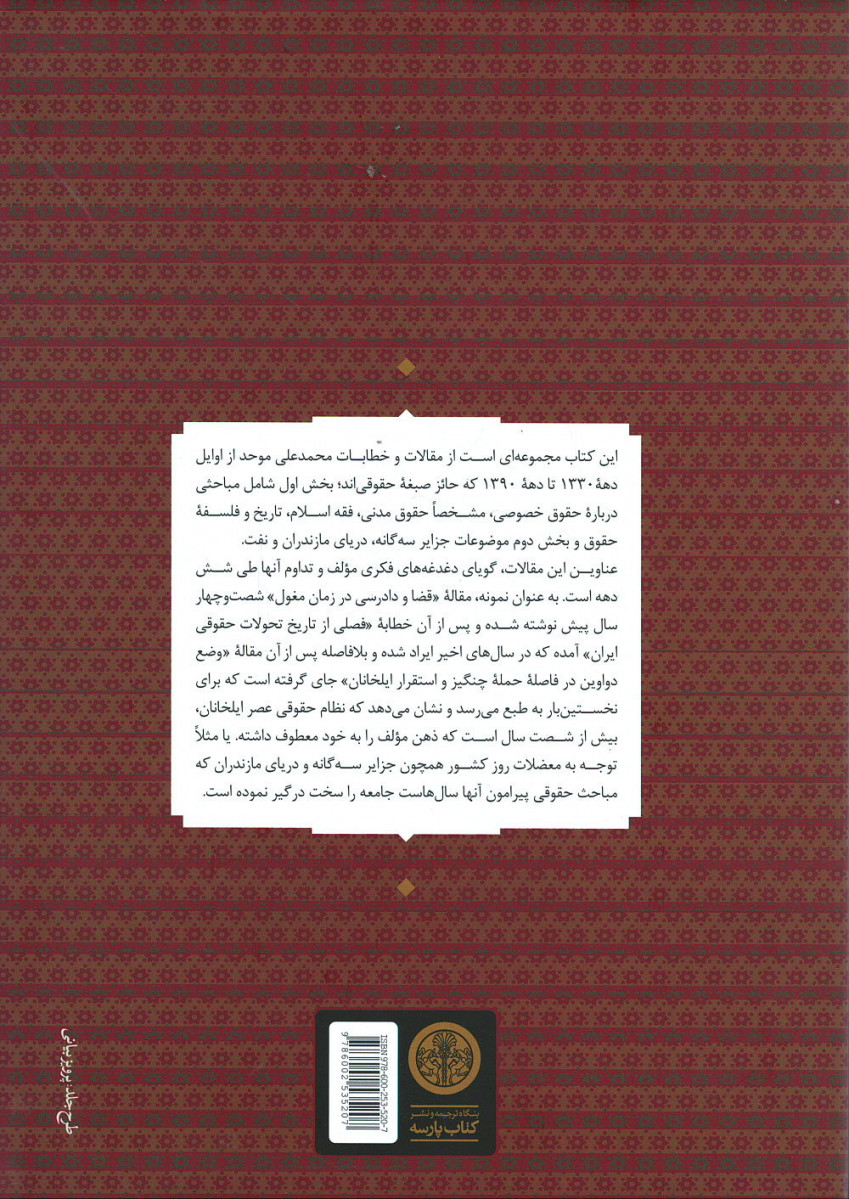 این کتاب مجموعه‌ای است از مقالات و خطابات محمدعلی موحد از اوایل
دههٔ ۱۳۳۰ تا دههٔ ۱۳۹۰ که حائز صبغهٔ حقوقی‌اند؛ بخش اول شامل مباحثی
دربارهٔ حقوق خصوصی، مشخصاً حقوق مدنی، فقه اسلام، تاریخ و فلسفهٔ
حقوق و بخش دوم موضوعات جزایر سه‌گانه، دریای مازندران و نفت.
عناوین این مقالات، گویای دغدغه‌های فکری مؤلف و تداوم آنها طی شش
دهه است. به عنوان نمونه، مقالهٔ «قضا و دادرسی در زمان مغول» شصت‌وچهار
سال پیش نوشته شده و پس از آن خطابهٔ «فصلی از تاریخ تحولات حقوقی
ایران» آمده که در سال‌های اخیر ایراد شده و بلافاصله پس از آن مقالهٔ «وضع
دواوین در فاصلهٔ حملهٔ چنگیز و استقرار ایلخانان» جای گرفته است که برای
نخستین‌بار به طبع می‌رسد و نشان می‌دهد که نظام حقوقی عصر ایلخانان،
بیش از شصت سال است که ذهن مؤلف را به خود معطوف داشته. یا مثلاً
توجه به معضلات روز کشور همچون جزایر سه‌گانه و دریای مازندران که
مباحث حقوقی پیرامون آنها سال‌هاست جامعه را سخت درگیر نموده است.
طرح جلد: پرویز بیانی
ISBN 978-600-253-520-7
9 786002 535207
بنگاه ترجمه و نشر
کتاب پارسه